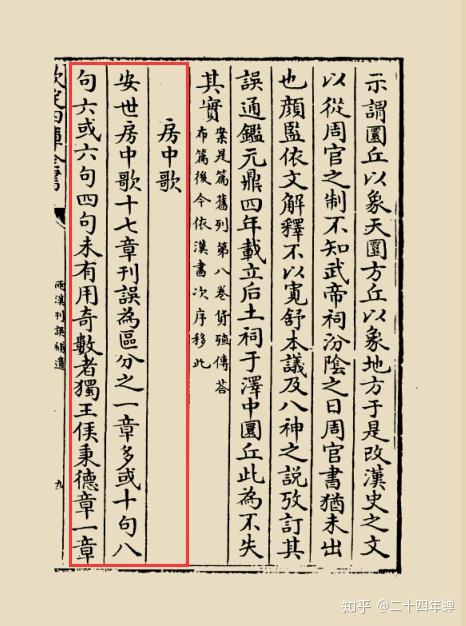 示謂圜丘以象天圜方丘以象地方于是改漢史之文
以從周官之制不知武帝祠汾陰之日周官書猶未出
也顔監依文解釋不以寛舒本議及八神之説攷訂其
誤通鑑元鼎四年載立后土祠于澤中圜丘此為不失
其實
案是篇舊列第八卷貨殖傳荅
布篇後今依漢書次序移此
房中歌
安世房中歌十七章刊誤為區分之一章多或十句八
句六或六句四句未有用奇數者獨王侯秉德章一章
欽定四庫全書
兩漢刊誤補遺
九
知乎 @二十四年蝉